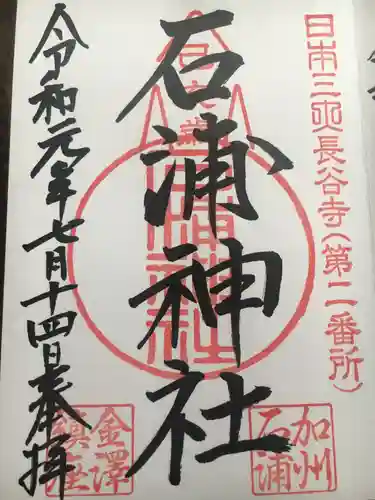 日本三所長谷寺(第二番所)
石浦神社
令和元年七月十四日奉拝
加州
石浦
金澤
鎮座